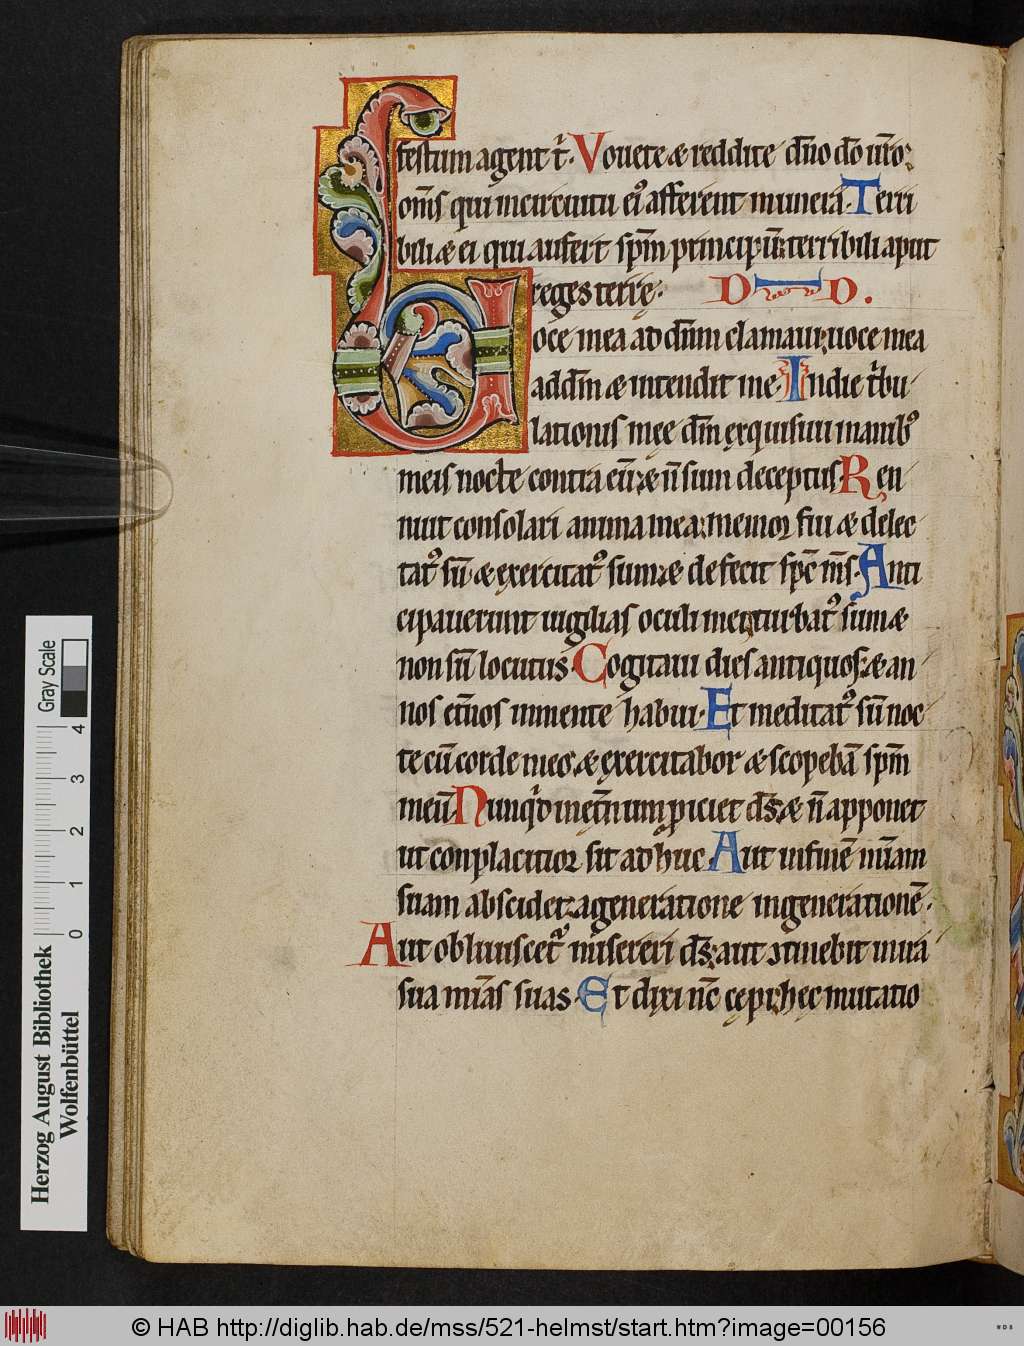 festum agent t̄. Vouete æ reddite dn̄o dō ur̄o:
om̄s qui incircuitu ei᾽ afferent munera. Terri
bili æ ei qui aufert sp̄m principū: terribili aput
reges terrę. D D.
oce mea ad dn̄m clamaui: uoce mea
ad dn̄m æ intendit me. Indie t̄bu
lationis meę dn̄m exquisiui manib᾽
meis nocte contra eū: æ n̄ sum deceptus Ren
nuit consolari anima mea: memor fui æ delec
tat᾽ sū æ exercitat᾽ sum: æ defecit sp̄c m̄s. Anti
cipauerunt uigilias oculi mei: turbat᾽ sum æ
non sū locutus. Cogitaui dies antiquos: æ an
nos et̄nos inmente habui. Et meditat᾽ sū noc
te cū corde meo: æ exercitabor æ scopebā sp̄m
meū. Nunq̄d inet̄num proiciet ds̄: æ n̄ apponet
ut conplacitior sit ad huc. Aut infinē mīam
suam abscidet: ageneratione ingenerationē.
Aut obliuiscet᾽ misereri ds̄: aut ↄtinebit inira
sua mīas suas. Et dixi nc̄ cępi: hęc mutatio
Herzog August Bibliothek
Wolfenbüttel
0 1 2 3 4
Gray Scale
© HAB http://diglib.hab.de/mss/521-helmst/start.htm?image=00156